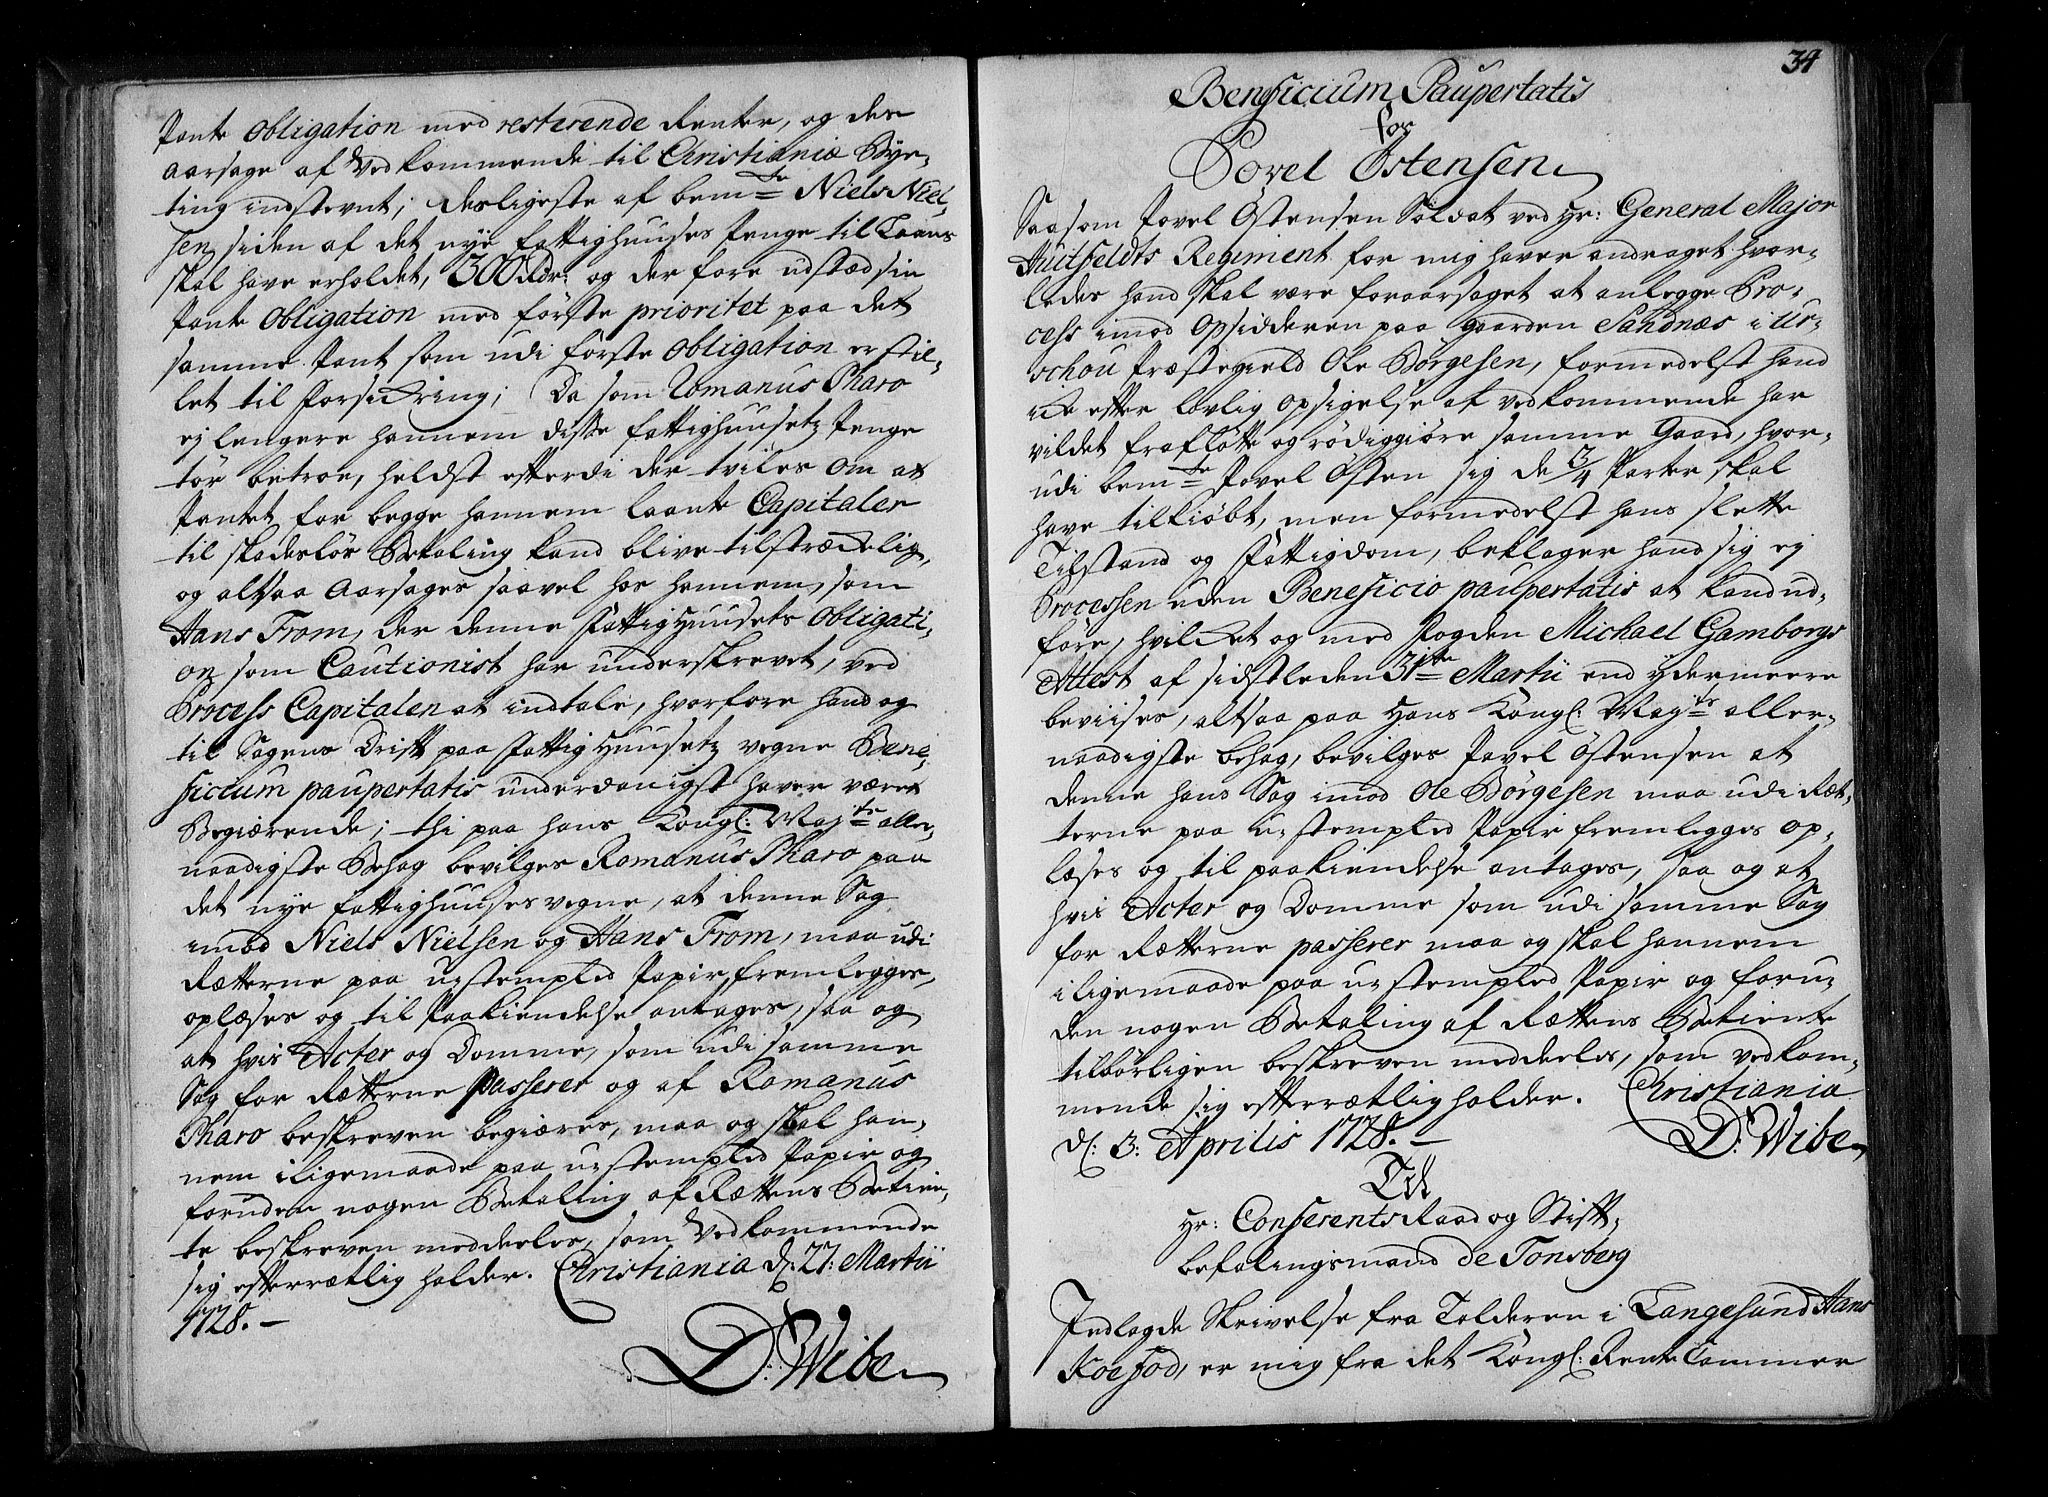 Pante Obligation med resterende Renter, og der
aarsage af Vedkommende til Christianiæ Bye-
ting indstevnt; desligeste af bemte Niels Niel-
sen siden af det nye fattighuuses Penge til Laans
skal have erholdet, 300 Rdr: og der fore udstædsin
Pante Obligation med første prioritet paa det
samme Pant som udi første Obligation er stil-
let til Forsickring; Da som Romanus Pharo
ej lengere hannem disse fattighuusetz Penge
tør betroe, heldst efterdi der tviles om at
Pantet for begge hannem laante Capitaler
til skadesløs Betaling kand blive tilstræckelig,
og altsaa Aarsages saavel hos hannem, som
Hans From, der denne Fattighuusets Obligati-
on som Cautionist har underskrevet, ved
Process Capitalen at indtale, hvorfore hand og
til Sagens Drift paa Fattighuusetz vegne Bene-
ficium paupertatis underdanigst haver været
Begiærende; thi paa hans Kongl: Majts aller-
naadigste Behag bevilges Romanus Pharo paa
det nye fattighuuses vegne, at denne Sag
imod Niels Nielsen og Hans From, maa udi
Rætterne paa u-stempled Papir fremlegges,
oplæses og til Paakiendelse antages, saa og
at hvis Acter og Domme, som udi samme
Sag for Rætterne passerer og af Romanus
Pharo beskreven begiæres, maa og skal han-
nem iligemaade paa u-stempled Papir og
foruden nogen Betaling af Rættens Betien-
te beskreven meddeeles, som Vedkommende
sig efterrætlig holder. Christiania d: 27: Martii
1728.-
D: Wibe
34
Beneficium Paupertatis
for
Povel Østensen
Saasom Povel Østensen Soldat ved Hr: General Major
Huitfeldts Regiment for mig haver andraget hvor-
ledes hand skal være foraarsaget at anlegge Pro-
cess imod Opsidderen paa Gaarden Sandnæs i Ur-
schou Præstegield Ole Børgesen, formedelst hand
icke efter lovlig Opsigelse af vedkommende har
vildet fraflötte og rödiggiøre samme Gaard, hvor-
udi bemte Povel Østen sig de 3/4 Parter skal
have tilkiøbt, men formedelst hans slette
Tilstand og Fattigdom, beklager hand sig ej
Processen uden Beneficio paupertatis at kand ud-
føre, hvilcket og med Fogden Michael Gamborgs
Attest af sidstleden 31te Martii end ydermeere
beviises, altsaa paa Hans Kongl: Mayts aller-
naadigste behag, bevilges Povel Østensen at
denne hans Sag imod Ole Börgesen maa udi Ræt-
terne paa u-stempled Papir fremlegges op-
læses og til paakiendelse antages, saa og at
hvis Acter og Domme som udi samme Sag
for Rætterne passerer maa og skal hannem
iligemaade paa u-stempled Papir og foru-
den nogen Betaling af Rættens Betiente
tilbørligen beskreven meddeeles, som vedkom-
mende sig efterrætlig holder. Christiania
d: 3: Aprilis 1728.-
D: Wibe
Til
Hr: Conferents Raad og Stift-
befalingsmand de Tonsberg
Indlagde Skrivelse fra Tolderen i Langesund Hans
Koefod, er mig fra det Kongl: Rente Cammer